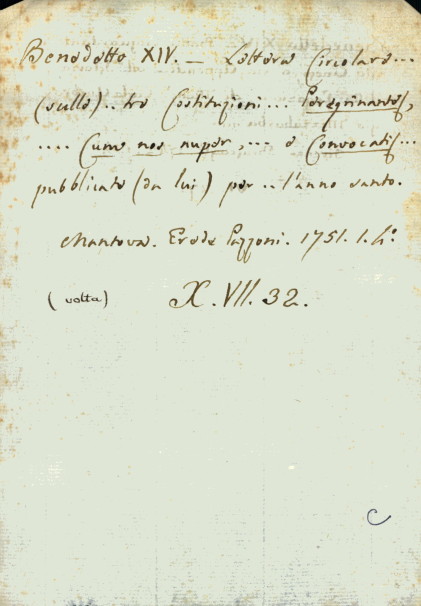 Benedetto XIV. — Lettera Circolare...
(sulle).. tre Costituzioni... Peregrinantes,
.... Cum nos nuper, ... e Convocatis...
pubblicate (da lui) per .. l'anno santo.
Mantova. Erede Pazzoni. 1751. 1. 4°.
(volta) X. VII. 32.
C